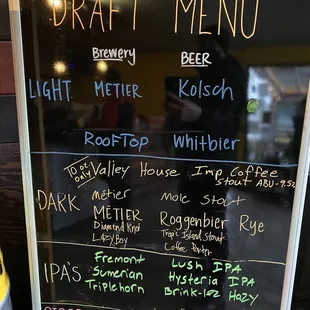 DRAFT MENU
Brewery BEER
LIGHT METIER Kolsch
ROOFTOP Whitbier
10 oz only Valley House Imp Coffee
Stout ABV-9.5%
DARK métier Mole Stout
METIER Roggenbier Rye
Diamond Knot Trap's Island Stout
Lazy Boy Coffee Porter
IPA's Fremont Lush IPA
Sumerian Hysteria IPA
Triplehorn Hazy